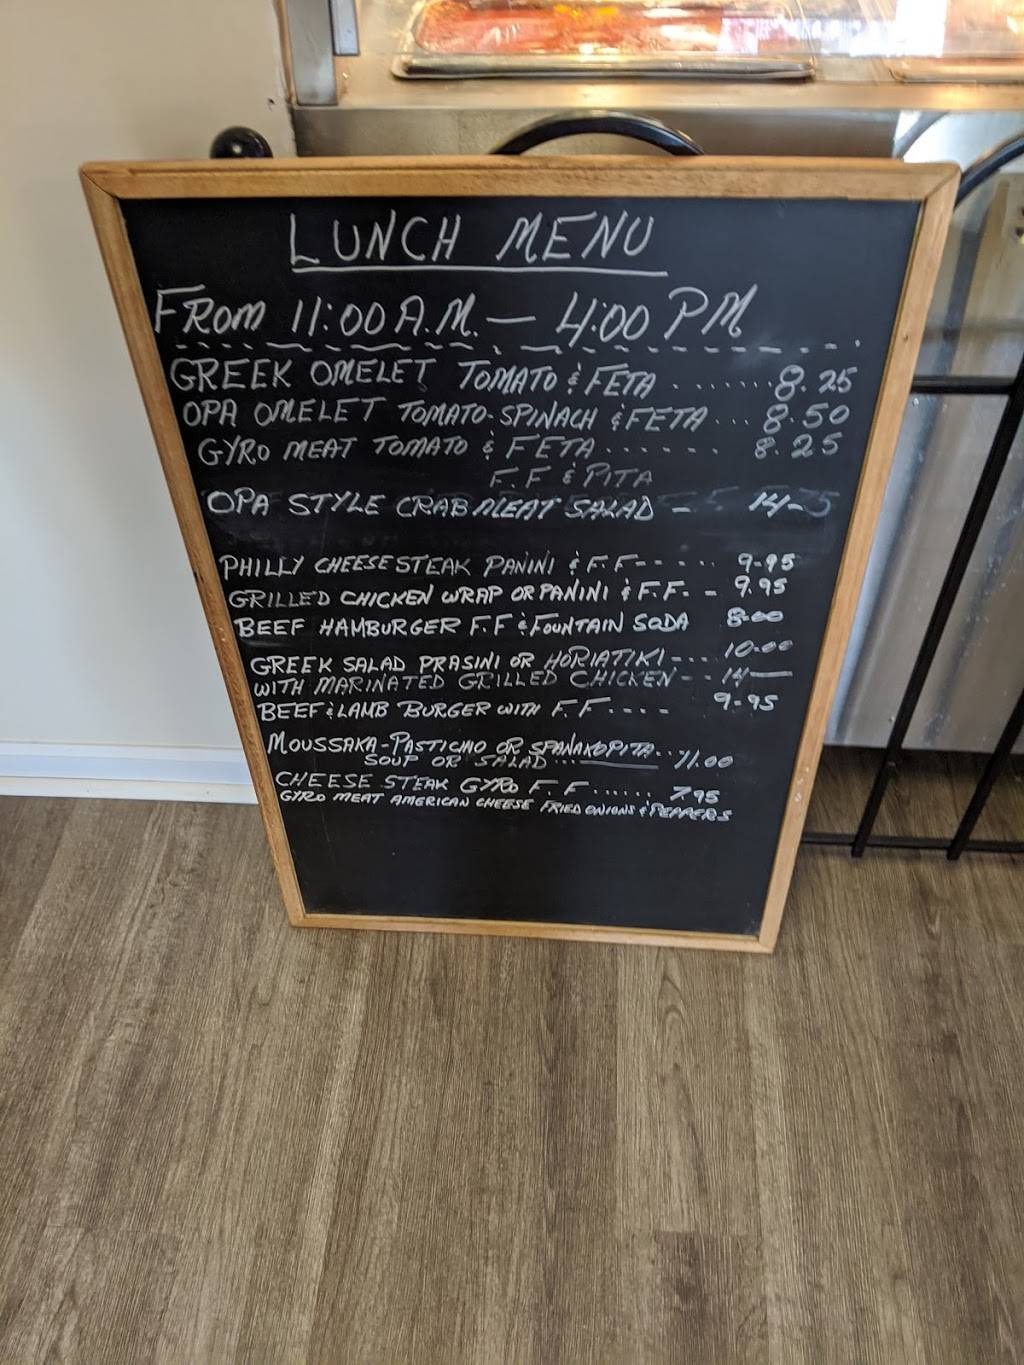 LUNCH MENU
FROM 11:00 A.M. — 4:00 PM
GREEK OMELET TOMATO & FETA ....... 8.25
OPA OMELET TOMATO-SPINACH & FETA ... 8.50
GYRO MEAT TOMATO & FETA ....... 8.25
F.F & PITA
OPA STYLE CRABMEAT SALAD - 14-
PHILLY CHEESE STEAK PANINI & F.F----- 9-95
GRILLED CHICKEN WRAP OR PANINI & F.F. - 9.95
BEEF HAMBURGER F.F & FOUNTAIN SODA 8-00
GREEK SALAD PRASINI OR HORIATIKI---- 10-00
WITH MARINATED GRILLED CHICKEN-- 14—
BEEF & LAMB BURGER WITH F.F .... 9-95
MOUSSAKA-PASTICHIO OR SPANAKOPITA...
SOUP OR SALAD ... 11.00
CHEESE STEAK GYRO F.F ...... 7.95
GYRO MEAT AMERICAN CHEESE FRIED ONIONS & PEPPERS